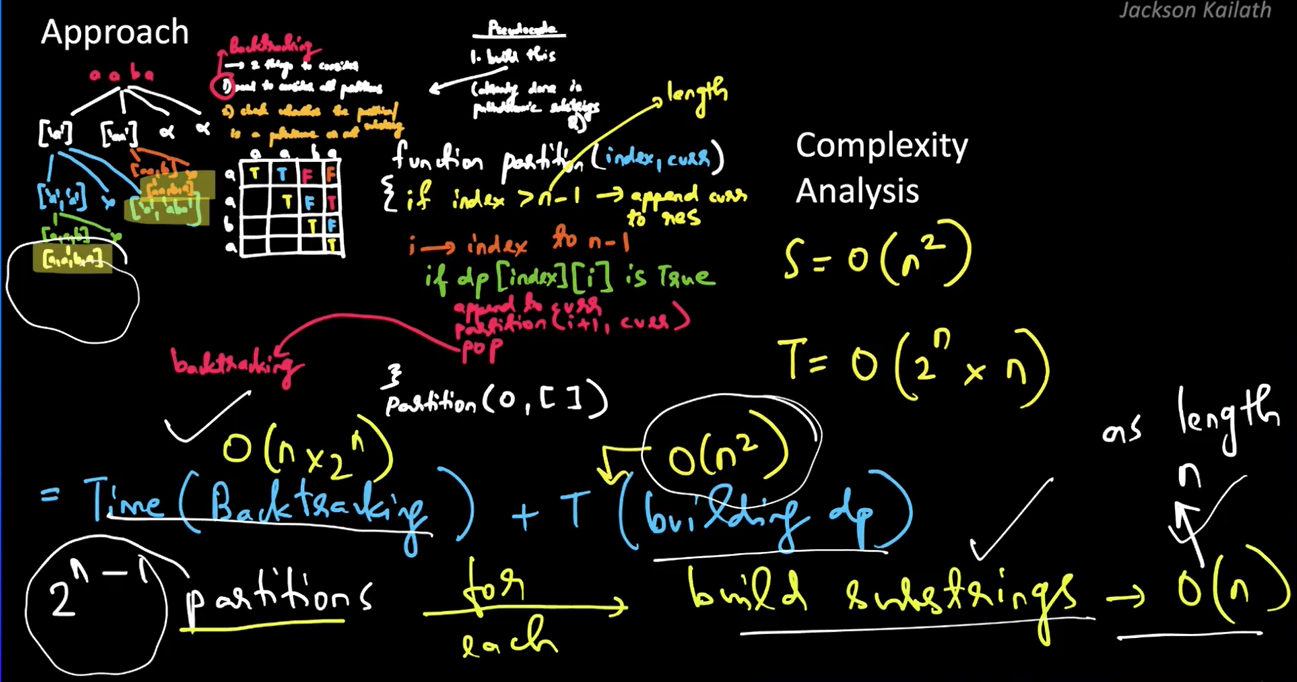 Jackson Kailath
Approach
a a b a
['a'] ['aa'] α α
['a','a'] ['a','aba']
[aa,b]
[aa,b,a]
[a,a,b]
[a,a,b,a]
Backtracking
→ 2 things to consider
1) need to consider all partitions
2) check whether the partition
is a palindrome or not
a a b a
a T T F F
a T F T
b T F
a T
Pseudocode
1. build this
(already done in
palindromic substrings
length
function partition (index, curr)
{ if index > n-1 → append curr
to res
i → index to n-1
if dp [index][i] is True
append to curr
partition (i+1, curr)
pop
backtracking
}
partition (0, [ ])
Complexity
Analysis
S = O(n²)
T = O(2ⁿ × n)
O(n × 2ⁿ)
O(n²)
= Time (Backtracking) + T (building dp)
as length
n
2ⁿ⁻¹ partitions for each → build substrings → O(n)